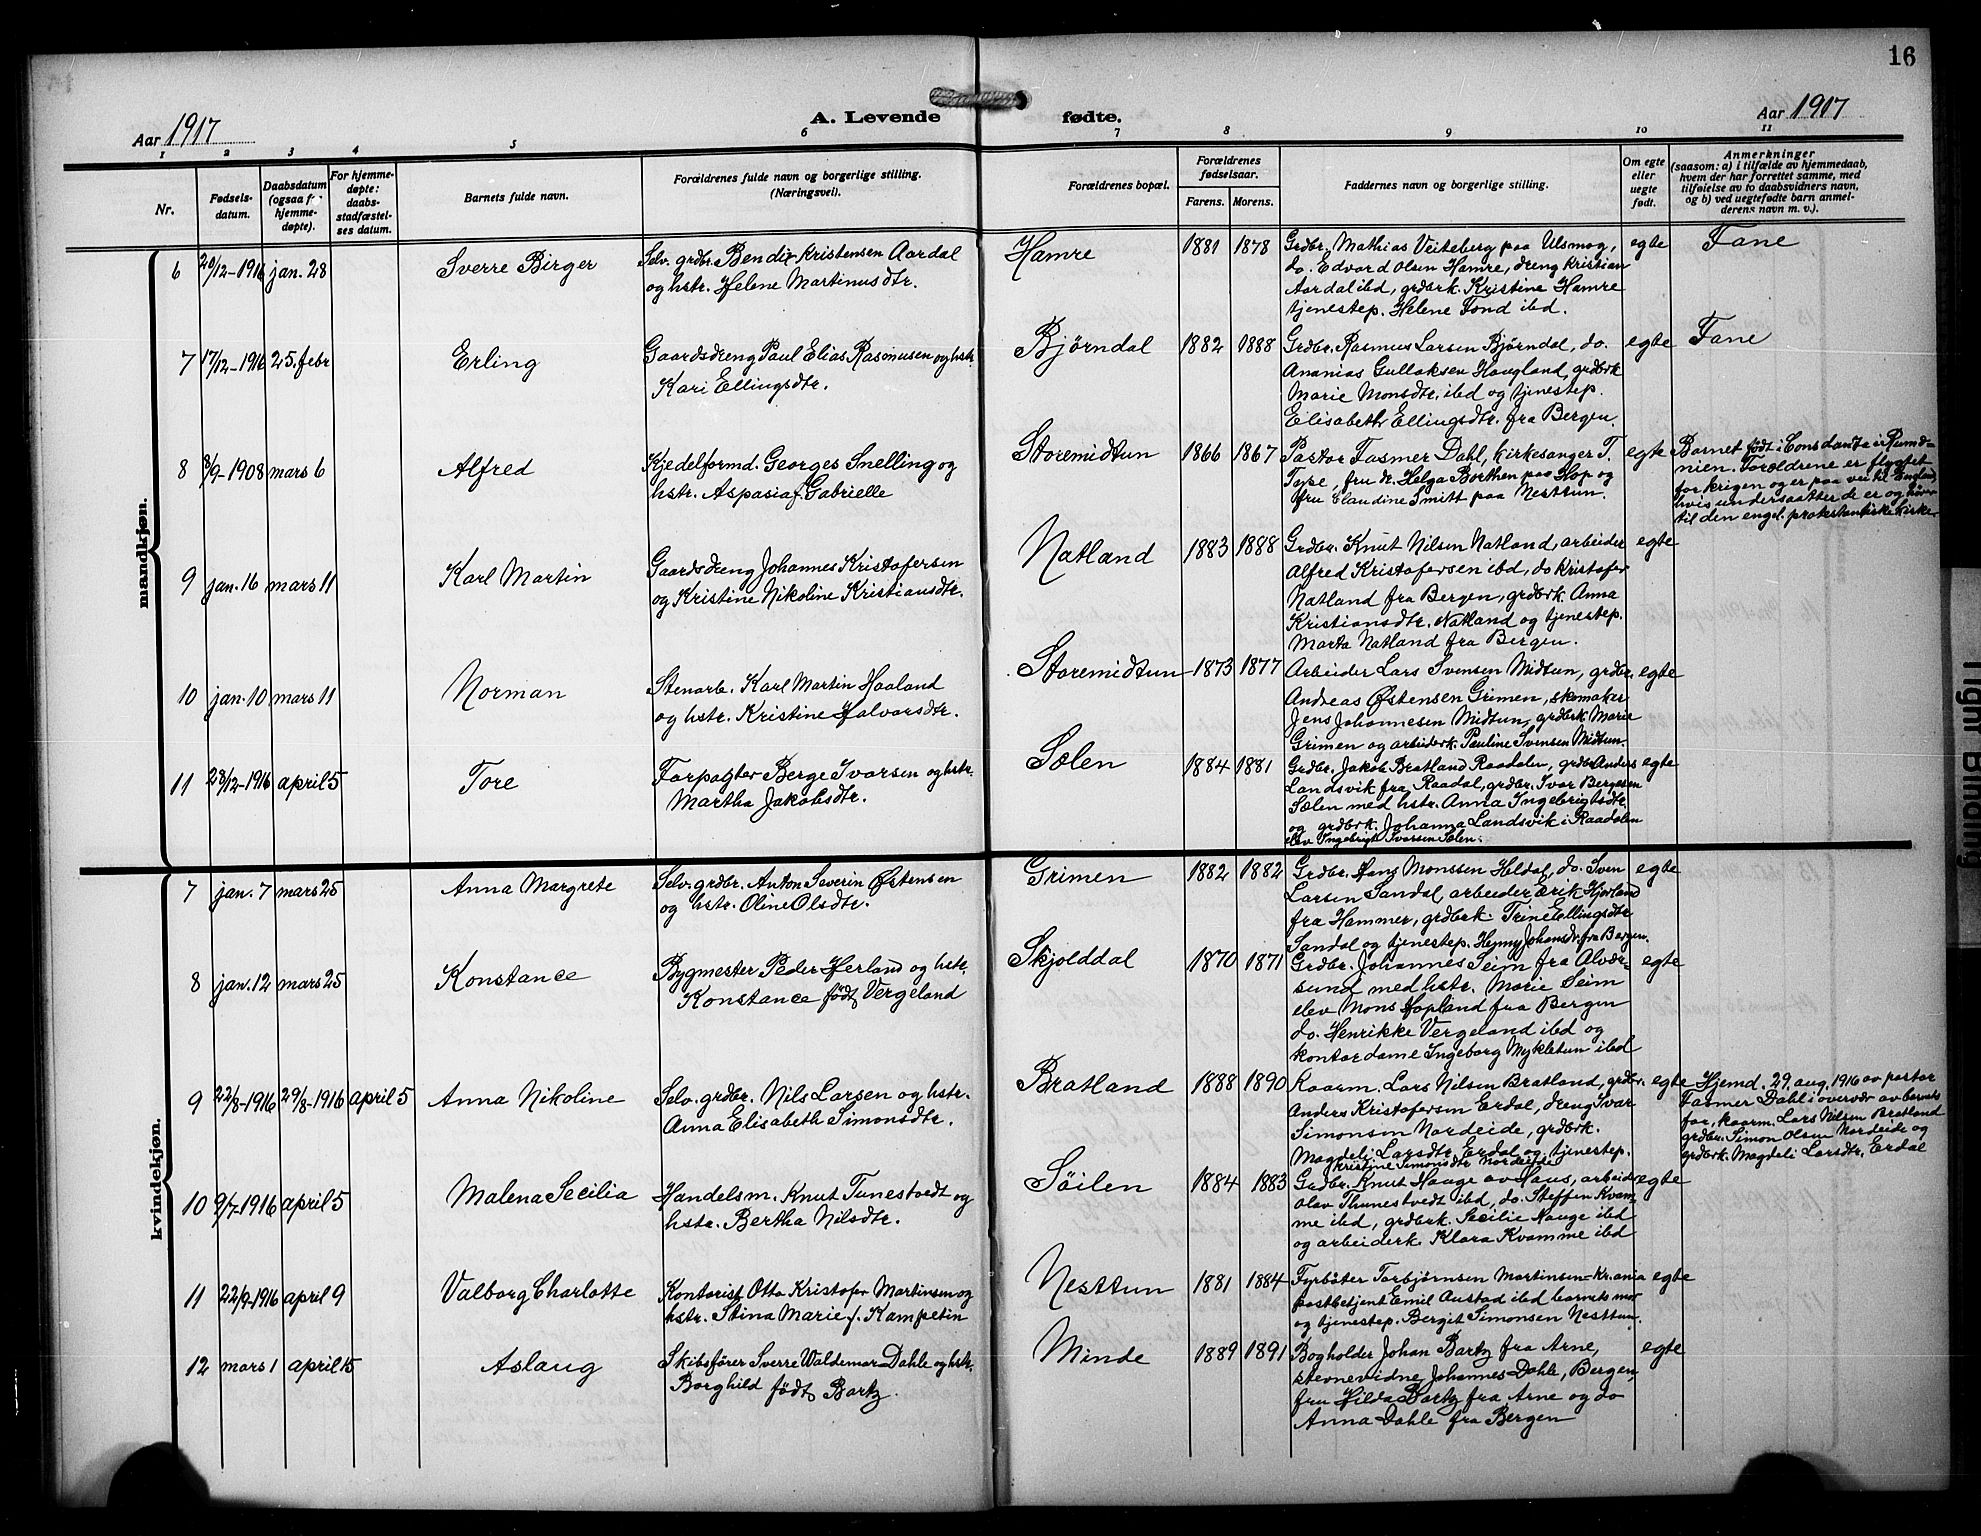 16
Aar 1917
A. Levende fødte.
Aar 1917
1 2 3 4 5 6 7 8 9 10 11
Nr.
Fødsels-
datum.
Daabsdatum
(ogsaa for
hjemme-
døpte).
For hjemme-
døpte:
daabs-
stadfæstel-
ses datum.
Barnets fulde navn.
Forældrenes fulde navn og borgerlige stilling.
(Næringsvei).
Forældrenes bopæl.
Forældrenes
fødselsaar.
Farens. Morens.
Faddernes navn og borgerlige stilling.
Om egte
eller
uegte
født.
Anmerkninger
(saasom: a) i tilfælde av hjemmedaab,
hvem der har forrettet samme, med
tilføielse av to daabsvidners navn,
og b) ved uegtefødte barn anmel-
derens navn m. v.).
mandkjøn.
6 20/12-1916 jan. 28 Sverre Birger
Selv. grdbr. Bendix Kristensen Aardal
og hstr. Helene Martinusdtr.
Hamre 1881 1878
Grdbr. Mathias Veiteberg paa Ulsmog,
do. Edvard Olsen Hamre, dreng Kristian
Aardal ibd, grdbrk. Kristine Hamre
tjenestep. Helene Fond ibd.
egte Fane
7 17/12-1916 25. febr Erling
Gaardsdreng Paul Elias Rasmusen og hstr.
Kari Ellingsdtr.
Bjørndal 1882 1888
Grdbr. Rasmus Larsen Bjørndal, do.
Ananias Gullaksen Haugland, grdbrk
Marie Monsdtr. ibd og tjenestep.
Elisabeth Ellingsdtr. fra Bergen.
egte Fane
8 8/9-1908 mars 6 Alfred
Kjedelformd. Georges Snelling og
hstr. Aspasia f. Gabrielle
Storemidtun 1866 1867
Pastor Fasmer Dahl, kirkesanger T.
Tyse, fru dr. Helga Borthen paa Hop og
fru Claudine Smitt paa Nesttun.
egte
Barnet født i Consdanza i Rumæ-
nien. Forældrene er flygtet
for krigen og er paa vei til England,
hvis undersaatter de er og hører
til den engel. protestantiske kirke.
9 jan. 16 mars 11 Karl Martin
Gaardsdreng Johannes Kristofersen
og Kristine Nikoline Kristiansdtr.
Natland 1883 1888
Grdbr. Knut Nilsen Natland, arbeider
Alfred Kristofersen ibd, do Kristofer
Natland fra Bergen, grdbrk. Anna
Kristiansdtr. Natland og tjenestep.
Marta Natland fra Bergen.
egte
10 jan. 10 mars 11 Norman
Stenarb. Karl Martin Haaland
og hstr. Kristine Halvorsdtr.
Storemidtun 1873 1877
Arbeider Lars Svensen Midtun, grdbr.
Andreas Østensen Grimen, skomaker
Jens Johannesen Midtun, grdbrk. Marie
Grimen og arbeiderk. Pauline Svensen Midtun.
egte
11 28/12-1916 april 5 Tore
Forpagter Berge Ivarsen og hstr.
Martha Jakobsdtr.
Sælen 1884 1881
Grdbr. Jakob Bratland Raadalen, grdbr. Anders
Landsvik fra Raadal, grdbr. Ivar Bergesen
Sælen med hstr. Anna Ingebrigtsdtr.
og grdbrk. Johanna Landsvik i Raadalen
elev Ingebrigt Ivarsen Sælen.
egte
kvindekjøn.
7 jan. 7 mars 25 Anna Margrete
Selv. grdbr. Anton Severin Østensen
og hstr. Oline Olsdtr.
Grimen 1882 1882
Grdbr. Hans Monssen Heldal, do. Sven
Larsen Sandal, arbeider Erik Hjorland
fra Hammer, grdbrk. Trine Ellingsdtr
Sandal og tjenestep. Henny Johansdr. fra Bergen.
egte
8 jan. 12 mars 25 Konstance
Bygmester Peder Herland og hstr.
Konstance født Vergeland
Skjolddal 1870 1871
Grdbr. Johannes Seim fra Alvær-
sund med hstr. Marie Seim
elev Mons Hopland fra Bergen
do. Henrikke Vergeland ibd og
kontordame Ingeborg Mykletun ibd
egte
9 22/8-1916 29/8-1916 april 5 Anna Nikoline
Selv. grdbr. Nils Larsen og hstr.
Anna Elisabeth Simonsdtr.
Bratland 1888 1890
Kaarm. Lars Nilsen Bratland, grdbr.
Anders Kristofersen Erdal, dreng Ivar
Simonsen Nordeide, grdbrk.
Magdeli Larsdtr. Erdal og tjenestep.
Kristine Simonsdtr Nordeide
egte
Hjemd. 29. aug. 1916 av pastor
Fasmer Dahl i overvær av barnets
far, kaarm. Lars Nilsen Bratland
grdbr. Simon Olsen Nordeide og
grdbrk. Magdeli Larsdtr. Erdal
10 9/7-1916 april 5 Malena Secilia
Handelsm. Knut Tunestvedt og
hstr. Bertha Nilsdtr.
Søilen 1884 1883
Grdbr. Knut Hauge av Haus, arbeider
Olav Thunestvedt ibd, do. Steffen Kvam-
me ibd, grdbrk. Secilie Hauge ibd
og arbeiderk. Klara Kvamme ibd
egte
11 22/9-1916 april 9 Valborg Charlotte
Kontorist Otto Kristofer Martinsen og
hstr. Stina Marie f. Kampetin
Nesttun 1881 1884
Fyrbøter Torbjørnsen Martinsen - Kr.ania
postbetjent Emil Austad ibd barnets mor
og tjenestep. Bergit Simonsen Nesttun.
egte
12 mars 1 april 15 Aslaug
Skibsfører Sverre Waldemar Dahle og hstr.
Borghild født Bartz.
Minde 1889 1891
Bogholder Johan Bartz fra Arne,
stevnevidne Johannes Dahle, Bergen,
fru Hilda Bartz fra Arne og do
Anna Dahle fra Bergen
egte
Tight Binding